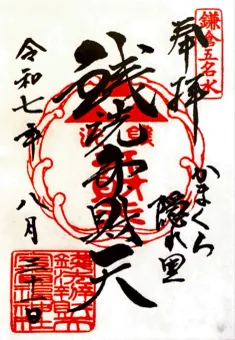 鎌倉五名水
奉拝
かまくら
隠れ里
銭洗弁財天
令和七年 八月 三十一日